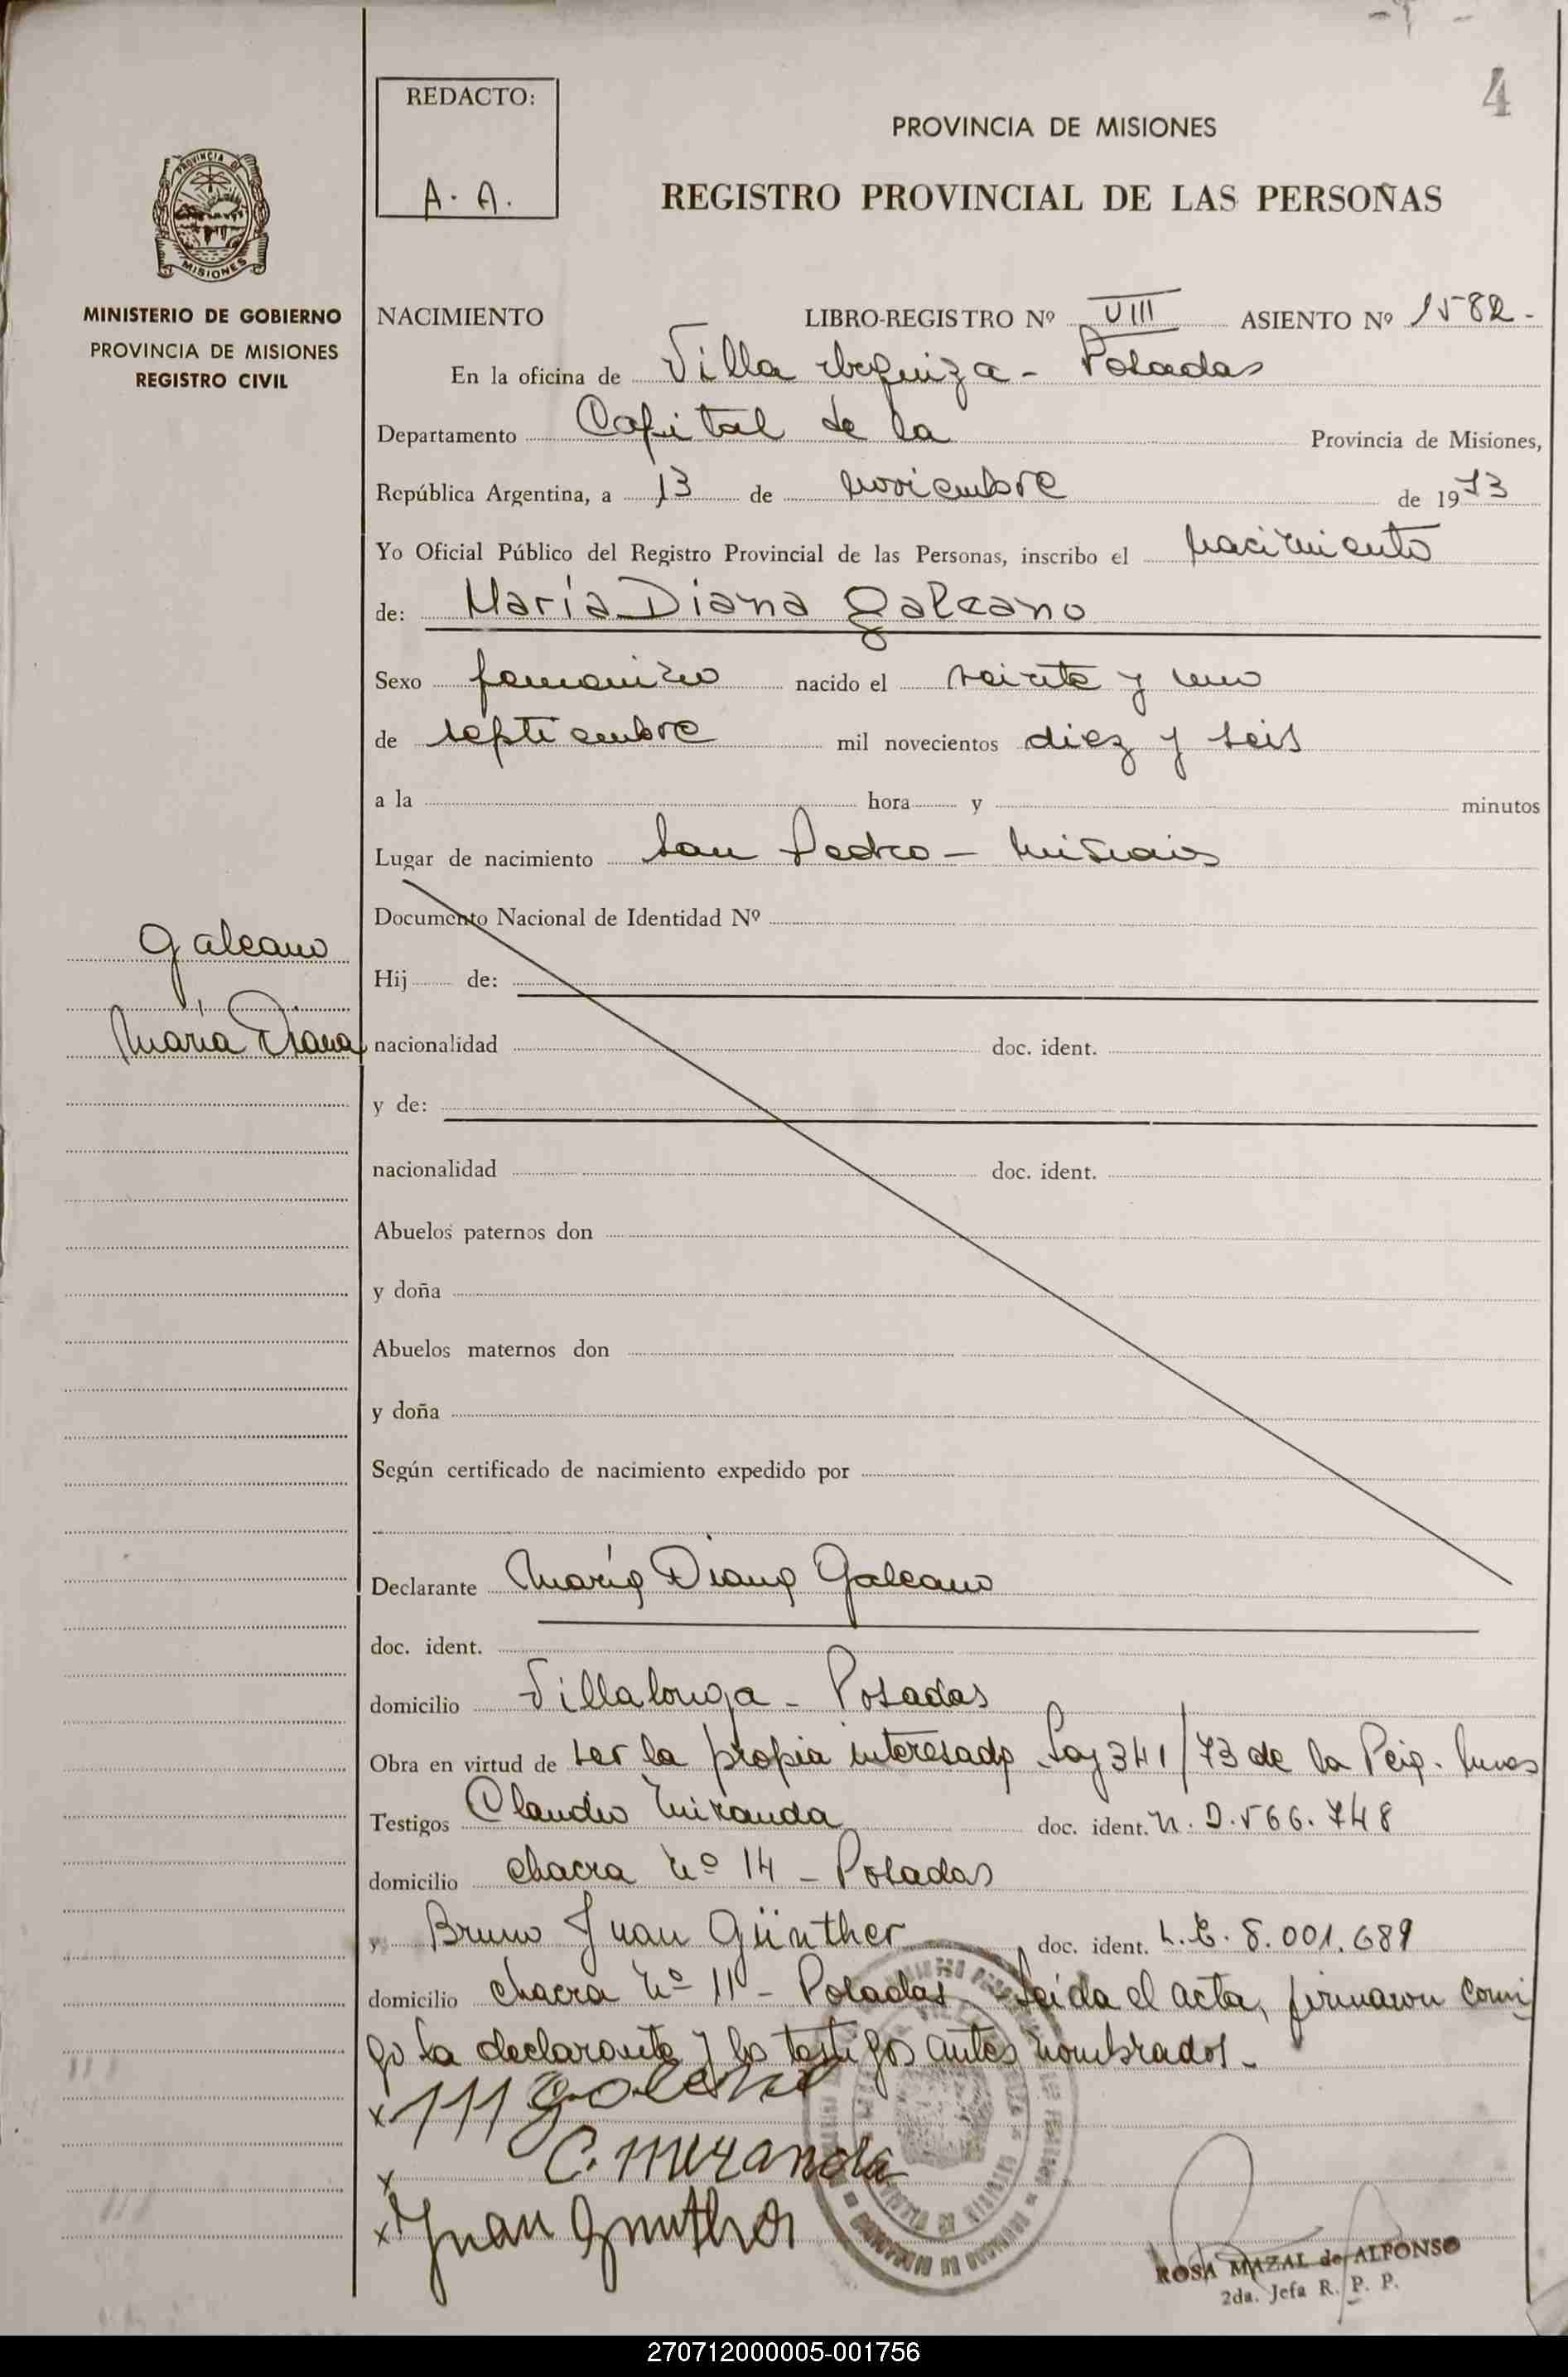 4
REDACTO:
A. A.
PROVINCIA DE MISIONES
REGISTRO PROVINCIAL DE LAS PERSONAS
PROVINCIA DE
MISIONES
MINISTERIO DE GOBIERNO
PROVINCIA DE MISIONES
REGISTRO CIVIL
NACIMIENTO LIBRO-REGISTRO Nº VIII ASIENTO Nº 1582-
En la oficina de Villa Urquiza - Posadas
Departamento Capital de la Provincia de Misiones,
República Argentina, a 13 de noviembre de 1973
Yo Oficial Público del Registro Provincial de las Personas, inscribo el nacimiento
de: María Diana Galeano
Sexo femenino nacido el veinte y uno
de septiembre mil novecientos diez y seis
a la hora y minutos
Lugar de nacimiento San Pedro - Misiones
Documento Nacional de Identidad Nº
Galeano
María Diana
Hij de:
nacionalidad doc. ident.
y de:
nacionalidad doc. ident.
Abuelos paternos don
y doña
Abuelos maternos don
y doña
Según certificado de nacimiento expedido por
Declarante María Diana Galeano
doc. ident.
domicilio Villalonga - Posadas
Obra en virtud de ser la propia interesada Ley 341/73 de la Pcia.
Testigos Claudio Miranda doc. ident. 566.748
domicilio chacra nº 14 - Posadas
y Bruno Juan Günther doc. ident. L.E. 8.001.689
domicilio chacra nº 11 - Posadas Leida el acta, firmaron conmi
go la declarante y los testigos antes nombrados.-
x
C. Miranda
x
x Juan
ROSA MAZAL de ALFONSO
2da. Jefa R. P. P.
270712000005-001756